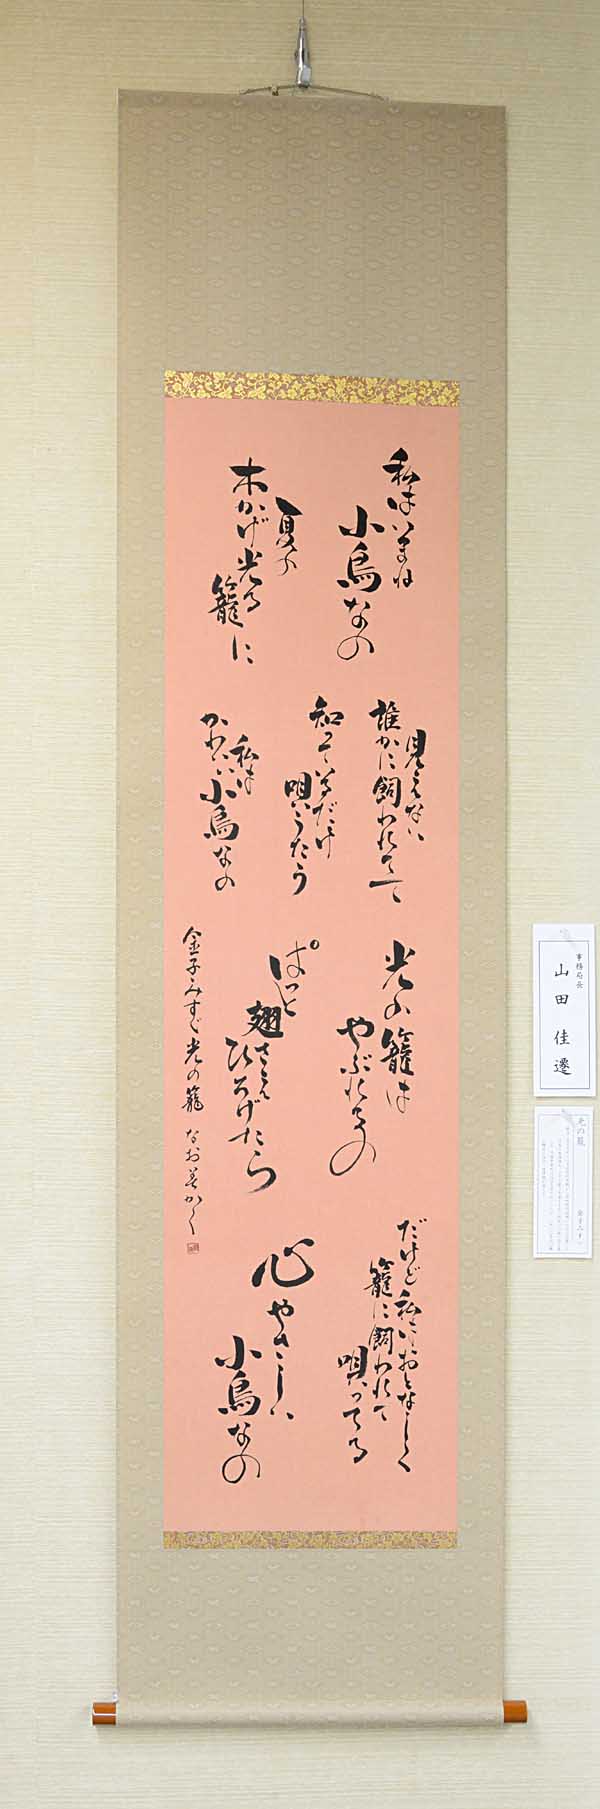 私はいまね
小鳥なの
夏の
木かげ光る
籠に
見えない
誰かに飼われてて
知っているだけ
唄うたう
私は
かわいい小鳥なの
光の籠は
やぶれるの
ぱっと
翅さえ
ひろげたら
だけど私はおとなしく
籠に飼われて
唄ってる
心やさしい
小鳥なの
金子みすゞ 光の籠 なお美かく
事務局長
山田佳遷
光の籠
金子みすゞ